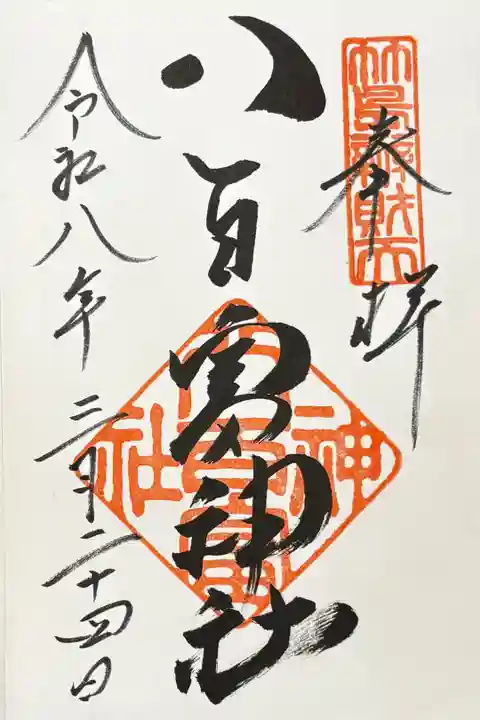 奉拝
竹島辯財天
八百富神社
八百富神社
令和八年 三月二十四日